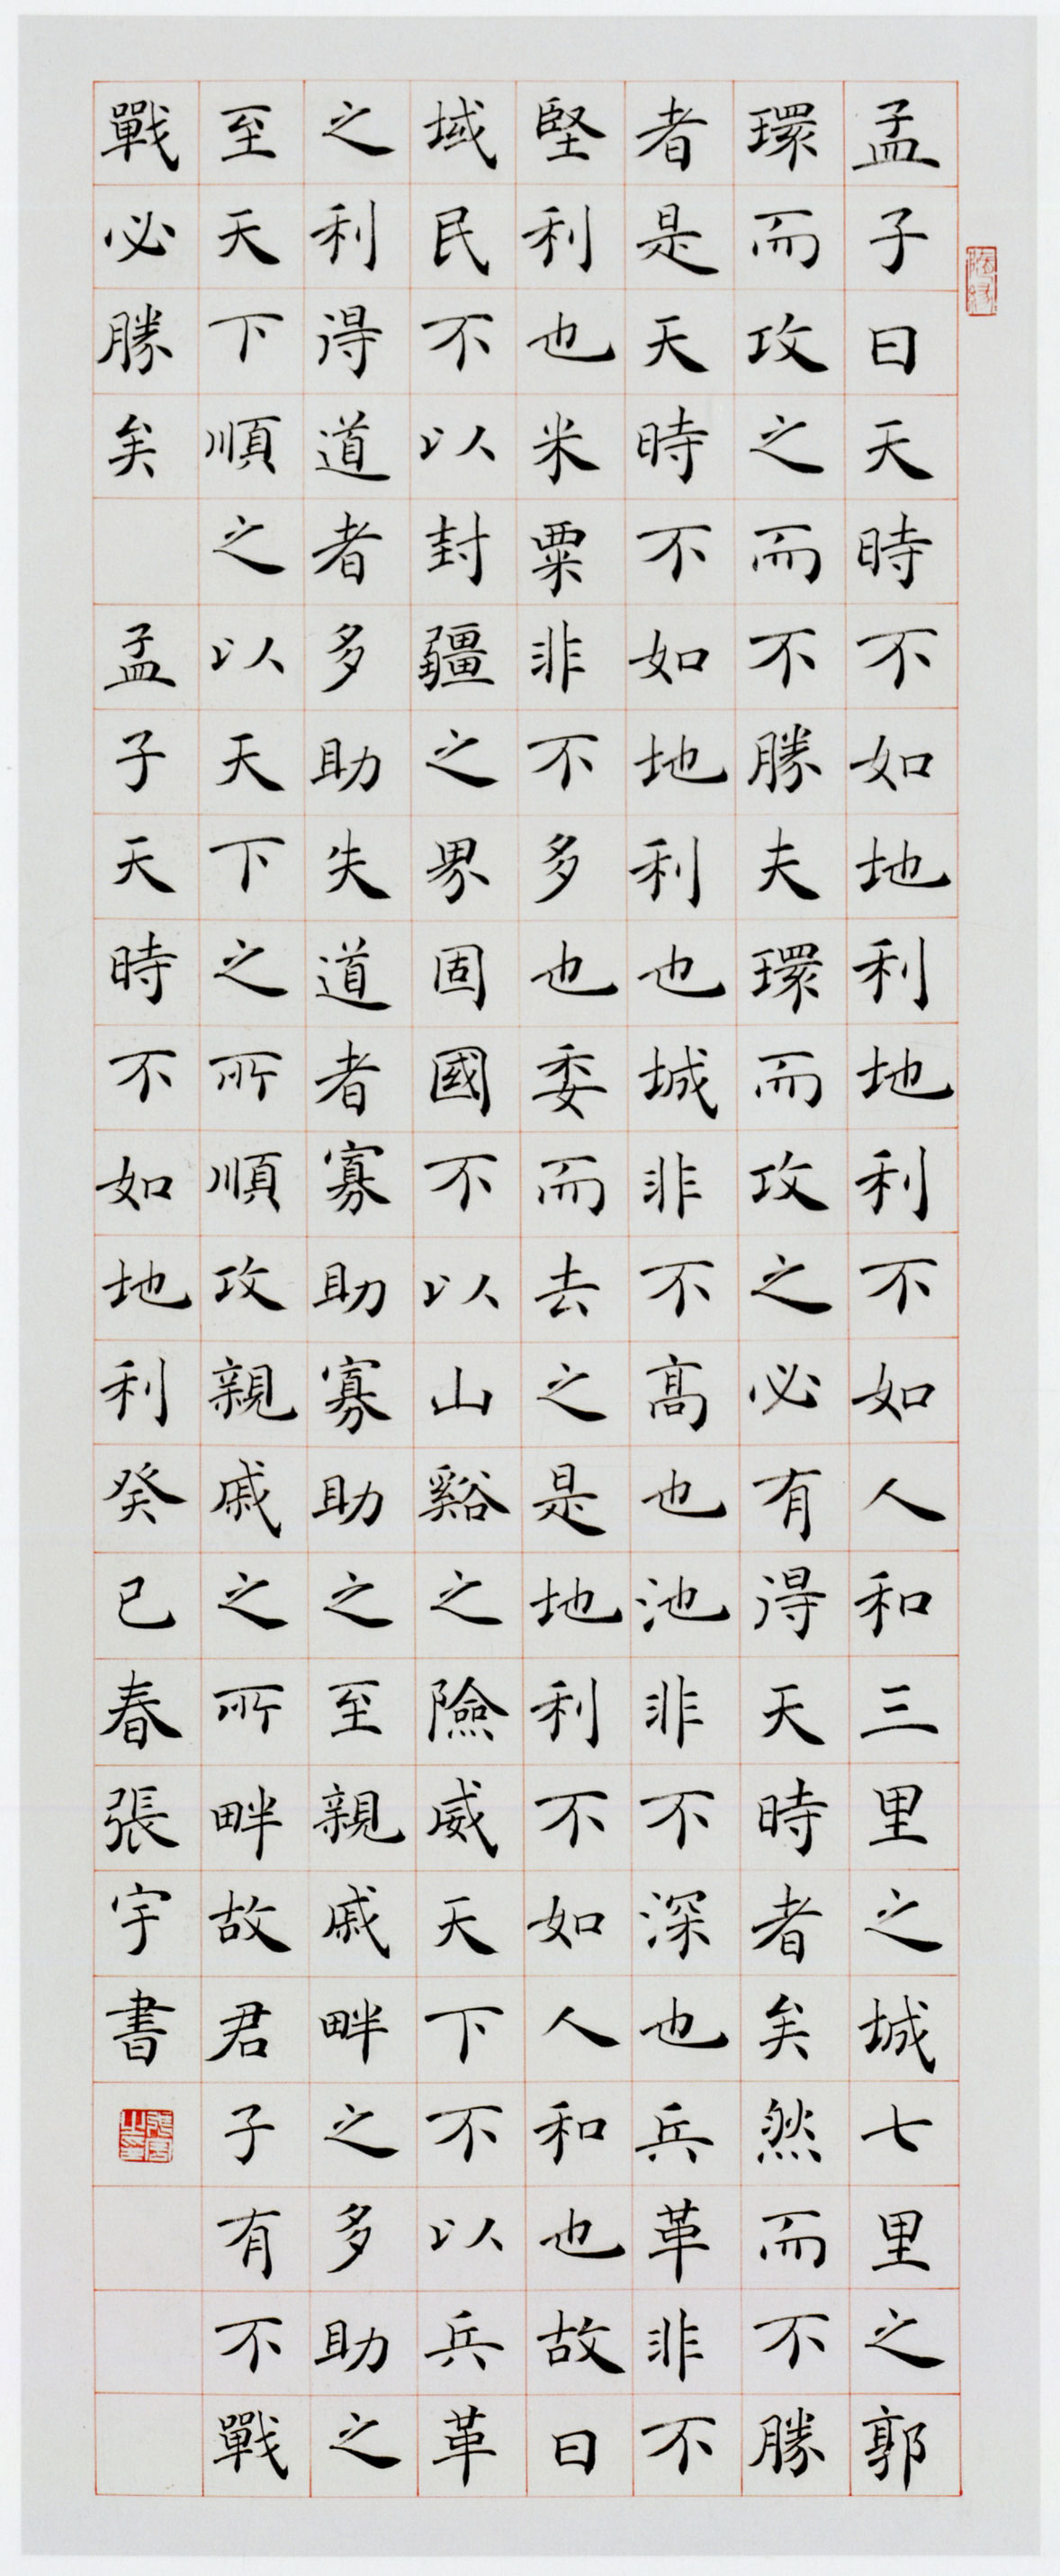 孟子曰天時不如地利地利不如人和三里之城七里之郭
環而攻之而不勝夫環而攻之必有得天時者矣然而不勝
者是天時不如地利也城非不高也池非不深也兵革非不
堅利也米粟非不多也委而去之是地利不如人和也故曰
域民不以封疆之界固國不以山谿之險威天下不以兵革
之利得道者多助失道者寡助寡助之至親戚畔之多助之
至天下順之以天下之所順攻親戚之所畔故君子有不戰
戰必勝矣 孟子天時不如地利癸已春張宇書